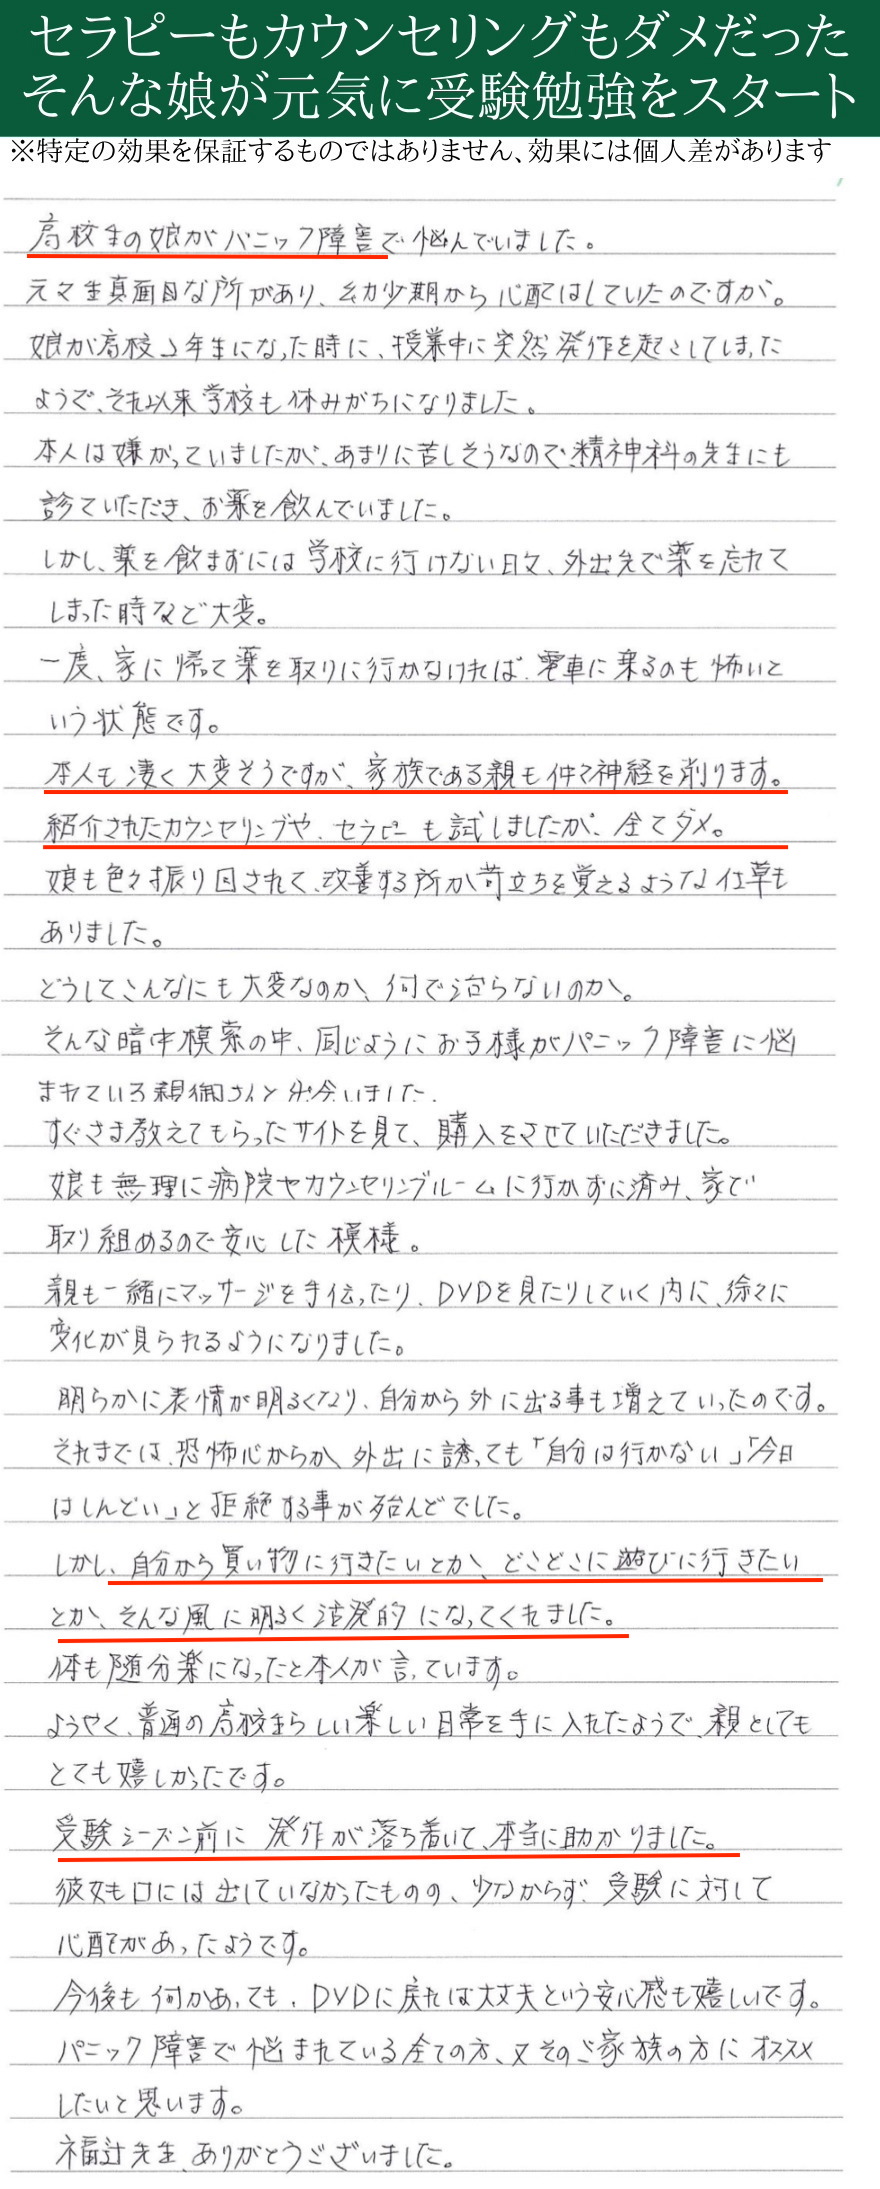 セラピーもカウンセリングもダメだった
そんな娘が元気に受験勉強をスタート
※特定の効果を保証するものではありません、効果には個人差があります
高校生の娘がパニック障害で悩んでいました。
元々生真面目な所があり、幼少期から心配はしていたのですが。
娘が高校2年生になった時に、授業中に突然発作を起こしてしまった
ようで、それ以来学校も休みがちになりました。
本人は嫌がっていましたが、あまりに苦しそうなので、精神科の先生にも
診ていただき、お薬を飲んでいました。
しかし、薬を飲まずには学校に行けない日々、外出先で薬を忘れて
しまった時など大変。
一度、家に帰って薬を取りに行かなければ、電車に乗るのも怖いと
いう状態です。
本人も凄く大変そうですが、家族である親も伴って神経を削ります。
紹介されたカウンセリングや、セラピーも試しましたが、全てダメ。
娘も色々振り回されて、改善する所か苛立ちを覚えるような仕草も
ありました。
どうしてこんなにも大変なのか、何で治らないのか。
そんな暗中模索の中、同じようにお子様がパニック障害に悩
まれている親御さんと出会いました。
すぐさま教えてもらったサイトを見て、購入をさせていただきました。
娘も無理に病院やカウンセリングルームに行かずに済み、家で
取り組めるので安心した模様。
親も一緒にマッサージを手伝ったり、DVDを見たりしていく内に、徐々に
変化が見られるようになりました。
明らかに表情が明るくなり、自分から外に出る事も増えていったのです。
それまでは、恐怖心からか、外出に誘っても「自分は行かない」「今日
はしんどい」と拒絶する事が殆んどでした。
しかし、自分から買い物に行きたいとか、どこどこに遊びに行きたい
とか、そんな風に明るく活発的になってくれました。
体も随分楽になったと本人が言っています。
ようやく、普通の高校生らしい楽しい日常を手に入れたようで、親としても
とても嬉しかったです。
受験シーズン前に発作が落ち着いて、本当に助かりました。
彼女も口には出していなかったものの、少なからず受験に対して
心配があったようです。
今後も何かあっても、DVDに戻れば大丈夫という安心感も嬉しいです。
パニック障害で悩まれている全ての方、又そのご家族の方にオススメ
したいと思います。
福辻先生、ありがとうございました。